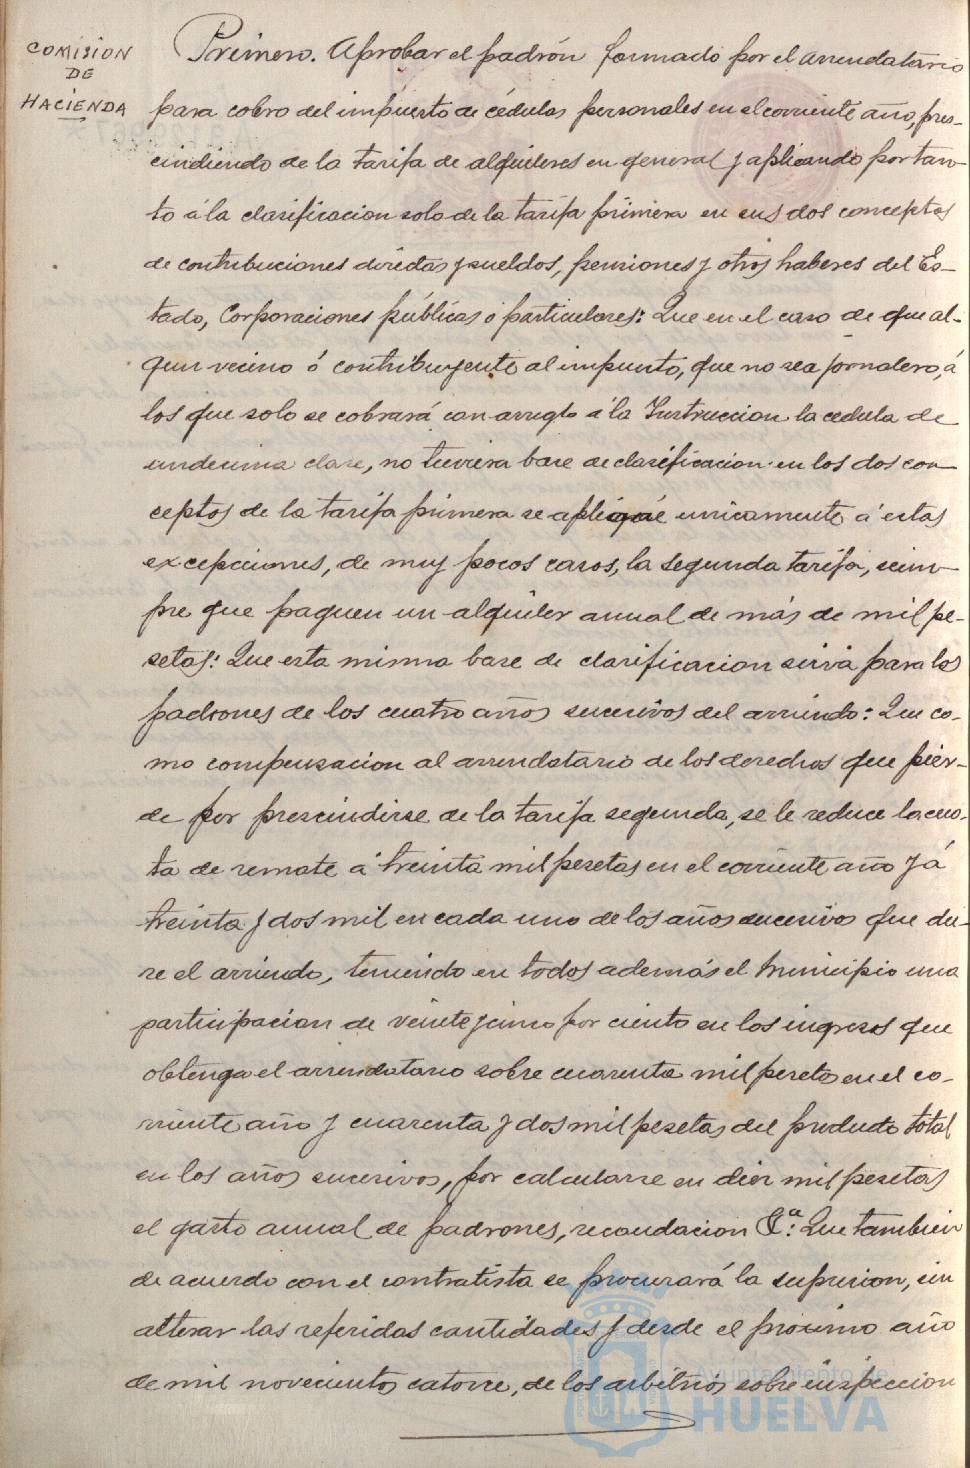 COMISION
DE
HACIENDA
Primero. Aprobar el padrón formado por el arrendatario
para cobro del impuesto de cédulas personales en el corriente año, pres-
cindiendo de la tarifa de alquileres en general y aplicando por tan-
to á la clasificacion solo de la tarifa primera en sus dos conceptos
de contribuciones directas y sueldos, pensiones y otros haberes del Es-
tado, Corporaciones públicas o particulares: Que en el caso de que al-
gun vecino ó contribuyente al impuesto, que no sea jornalero, á
los que solo se cobrará con arreglo á la Instruccion la cedula de
undecima clase, no tuviera base de clasificacion en los dos con-
ceptos de la tarifa primera se aplique unicamente á estas
excepciones, de muy pocos casos, la segunda tarifa, siem-
pre que paguen un alquiler anual de más de mil pe-
setas: Que esta misma base de clasificacion sirva para los
padrones de los cuatro años sucesivos del arriendo: Que co-
mo compensacion al arrendatario de los derechos que pier-
de por prescindirse de la tarifa segunda, se le reduce la cuo-
ta de remate á treinta mil pesetas en el corriente año y á
treinta y dos mil en cada uno de los años sucesivos que du-
re el arriendo, teniendo en todos además el Municipio una
participacion de veinte y cinco por ciento en los ingresos que
obtenga el arrendatario sobre cuarenta mil pesetas en el co-
rriente año y cuarenta y dos mil pesetas del producto total
en los años sucesivos, por calcularse en diez mil pesetas
el gasto anual de padrones, recaudacion &ª: Que tambien
de acuerdo con el contratista se procurará la supresion, sin
alterar las referidas cantidades y desde el proximo año
de mil novecientos catorce, de los arbitrios sobre inspeccion
Ayuntamiento de
HUELVA